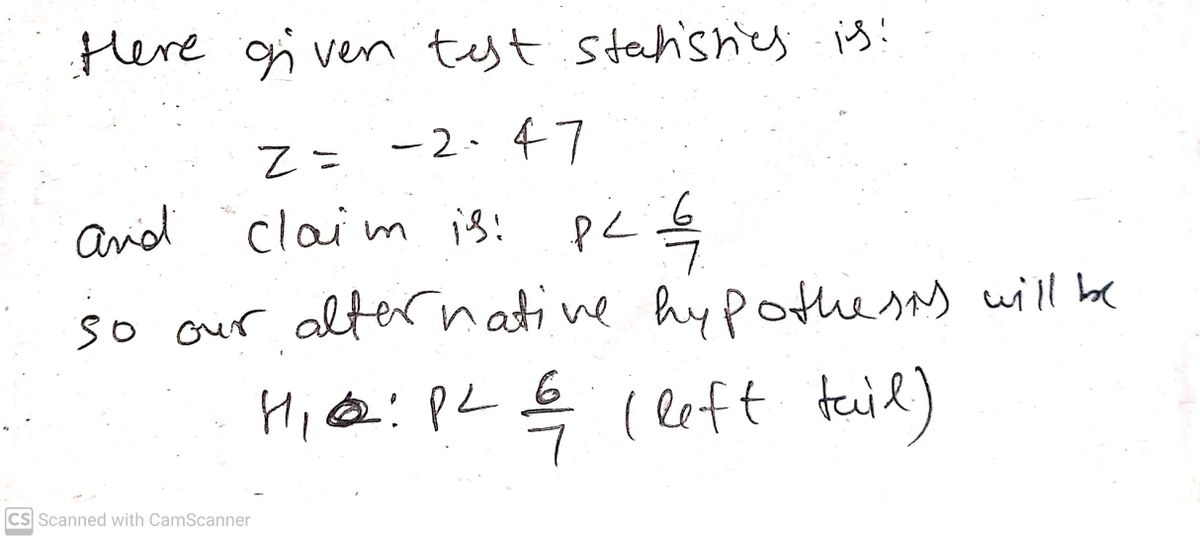 Here given test statistics is:
Z = -2.47
and claim is: P< 6/7
so our alternative hypothesis will be
H1: P< 6/7 (left tail)
CS Scanned with CamScanner